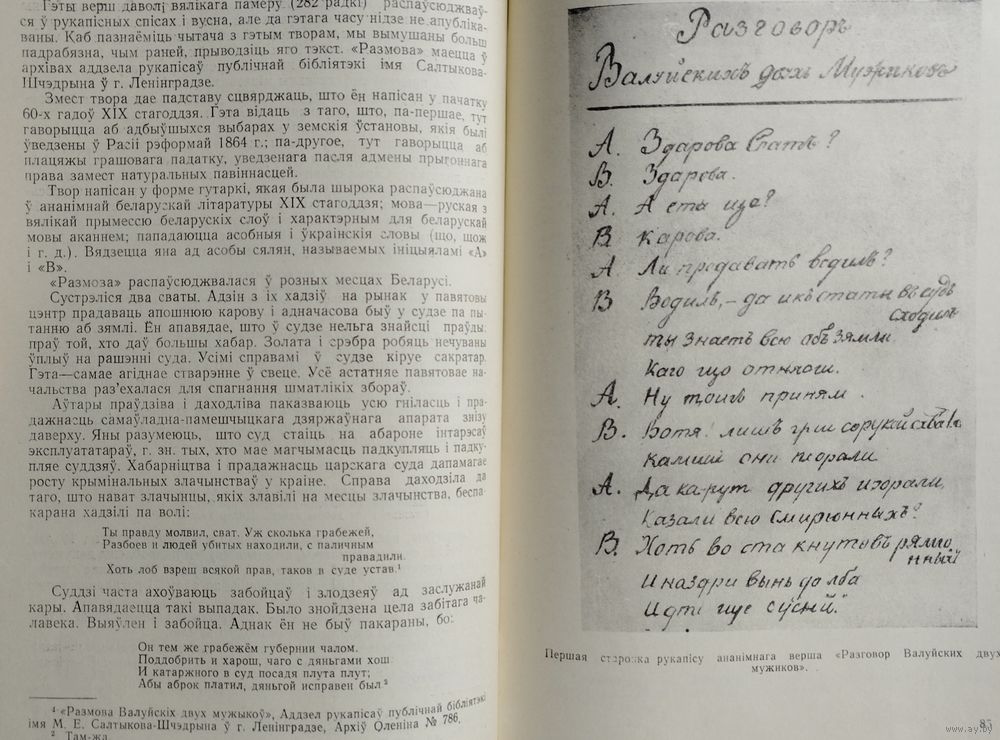 Гэты верш даволі вялікага памеру (282 радкі) распаўсюджваў-
ся ў рукапісных спісах і вусна, але да гэтага часу нідзе не апубліка-
ваны. Каб пазнаёміць чытача з гэтым творам, мы вымушаны больш
падрабязна, чым раней, прыводзіць яго тэкст. «Размова» маецца ў
архівах аддзела рукапісаў публічнай бібліятэкі імя Салтыкова-
Шчэдрына ў г. Ленінградзе.
Змест твора дае падставу сцвярджаць, што ён напісан у пачатку
60-х гадоў XIX стагоддзя. Гэта відаць з таго, што, па-першае, тут
гаворыцца аб адбыўшыхся выбарах у земскія ўстановы, якія былі
ўведзены ў Расіі рэформай 1864 г.; па-другое, тут гаворыцца аб
плацяжы грашовага падатку, уведзенага пасля адмены прыгоннага
права замест натуральных павіннасцей.
Твор напісан у форме гутаркі, якая была шырока распаўсюджана
ў ананімнай беларускай літаратуры XIX стагоддзя; мова—руская з
вялікай прымессю беларускіх слоў і характэрным для беларускай
мовы аканнем; пападаюцца асобныя і ўкраінскія словы (що, щож
і г. д.). Вядзецца яна ад асобы сялян, называемых ініцыяламі «А»
і «В».
«Размоза» распаўсюджвалася ў розных месцах Беларусі.
Сустрэліся два сваты. Адзін з іх хадзіў на рынак у павятовы
цэнтр прадаваць апошнюю карову і адначасова быў у судзе па пы-
танню аб зямлі. Ён апавядае, што ў судзе нельга знайсці праўды:
праў той, хто даў большы хабар. Золата і срэбра робяць нечуваны
ўплыў на рашэнні суда. Усімі справамі ў судзе кіруе сакратар.
Гэта—самае агіднае стварэнне ў свеце. Усё астатняе павятовае на-
чальства раз'ехалася для спагнання шматлікіх збораў.
Аўтары праўдзіва і даходліва паказваюць усю гніласць і пра-
дажнасць самаўладна-памешчыцкага дзяржаўнага апарата знізу
даверху. Яны разумеюць, што суд стаіць на абароне інтарэсаў
эксплуататараў, г. зн. тых, хто мае магчымасць падкупляць і падку-
пляе суддзяў. Хабарніцтва і прадажнасць царскага суда дапамагае
росту крымінальных злачынстваў у краіне. Справа даходзіла да
таго, што нават злачынцы, якіх злавілі на месцы злачынства, беспа-
карана хадзілі па волі:
Ты правду молвил, сват. Уж сколька грабежей,
Разбоев и людей убитых находили, с паличным
правадили.
Хоть лоб взреш всякой прав, таков в суде устав.¹
Суддзі часта ахоўваюць забойцаў і злодзеяў ад заслужанай
кары. Апавядаецца такі выпадак. Было знойдзена цела забітага ча-
лавека. Выяўлен і забойца. Аднак ён не быў пакараны, бо:
Он тем же грабежём губернии чалом.
Поддобрить и харош, чаго с дяньгами хош
И катаржного в суд посадя плута плут;
Абы аброк платил, дяньгой исправен был²
¹ «Размова Валуйскіх двух мужыкоў», Аддзел рукапісаў публічнай бібліятэкі
імя М. Е. Салтыкова-Шчэдрына ў г. Ленінградзе, Архіў Оленіна № 786,
² Там-жа.
Разговоръ
Валуйскихъ двхъ Мужиковъ
А. Здарова Сватъ?
В. Здарова.
А. А ета ища?
В Карова.
А Ли продавать водилъ?
В Водилъ, — да
сходилъ
ты знаеть всю объ зямли
Каго що отняли.
А. Ну приням.
В. лишъ
они пюрали
А. Да других
Казали всю
В. Хоть во ста кнутовъ
нный
И наздри вынь да лба
И дти ище
Першая старонка рукапісу ананімнага верша «Разговор Валуйских двух
мужиков».
85
www.ay.by